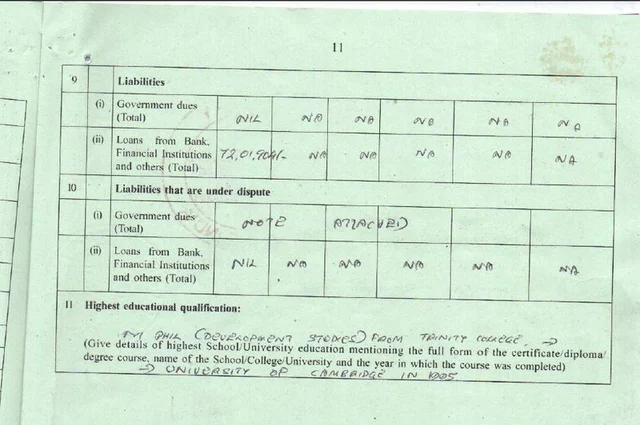 11
9 Liabilities
(i) Government dues (Total) NIL NA NA NA NA NA
(ii) Loans from Bank, Financial Institutions and others (Total) 72,01,904/- NA NA NA NA NA
10 Liabilities that are under dispute
(i) Government dues (Total) NOTE ATTACHED
(ii) Loans from Bank, Financial Institutions and others (Total) NIL NA NA NA NA NA
11 Highest educational qualification:
M PHIL (DEVELOPMENT STUDIES) FROM TRINITY COLLEGE →
(Give details of highest School/University education mentioning the full form of the certificate/diploma/
degree course, name of the School/College/University and the year in which the course was completed)
→ UNIVERSITY OF CAMBRIDGE IN 1995